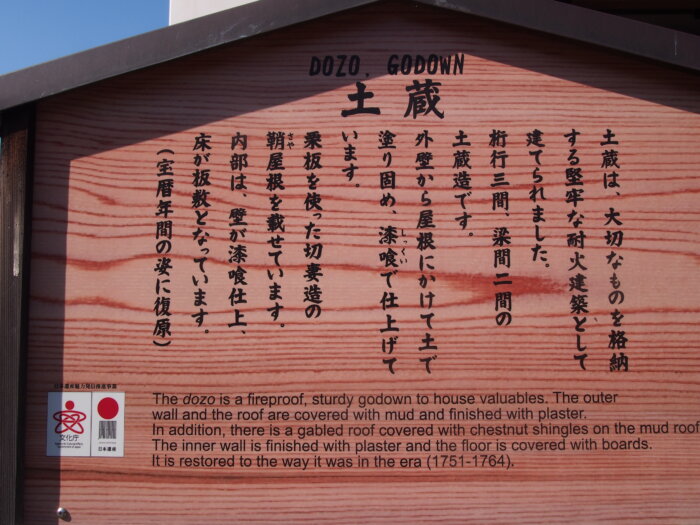 DOZO, GODOWN
土蔵
土蔵は、大切なものを格納
する堅牢な耐火建築として
建てられました。
桁行三間、梁間二間の
土蔵造です。
外壁から屋根にかけて土で
塗り固め、漆喰で仕上げて
しっくい
います。
栗板を使った切妻造の
鞘屋根を載せています。
さや
内部は、壁が漆喰仕上、
床が板敷となっています。
(宝暦年間の姿に復原)
The dozo is a fireproof, sturdy godown to house valuables. The outer
wall and the roof are covered with mud and finished with plaster.
In addition, there is a gabled roof covered with chestnut shingles on the mud roof
The inner wall is finished with plaster and the floor is covered with boards.
It is restored to the way it was in the era (1751-1764).
日本遺産魅力発信推進事業
文化庁
日本遺産